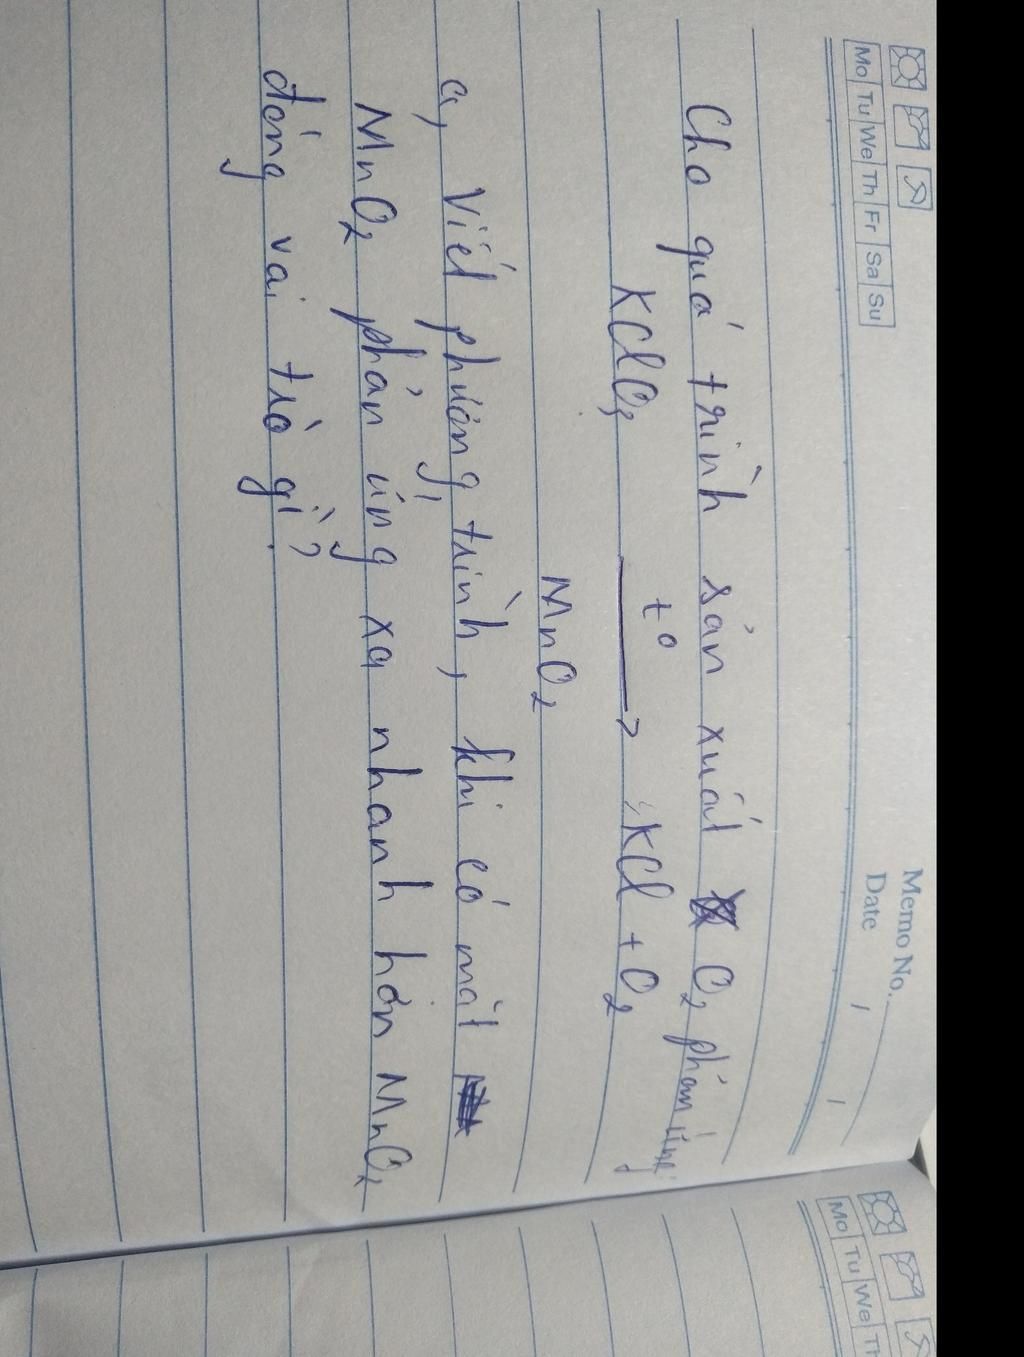 Memo No.
Mo Tu We Th Fr Sa Su
Date / /
Cho quá trình sản xuất O2 phản ứng
KClO3 t° → KCl + O2
MnO2
a, Viết phương trình, khi có mặt
MnO2 phản ứng xa nhanh hơn MnO2
đóng vai trò gì?
Mo Tu We Th